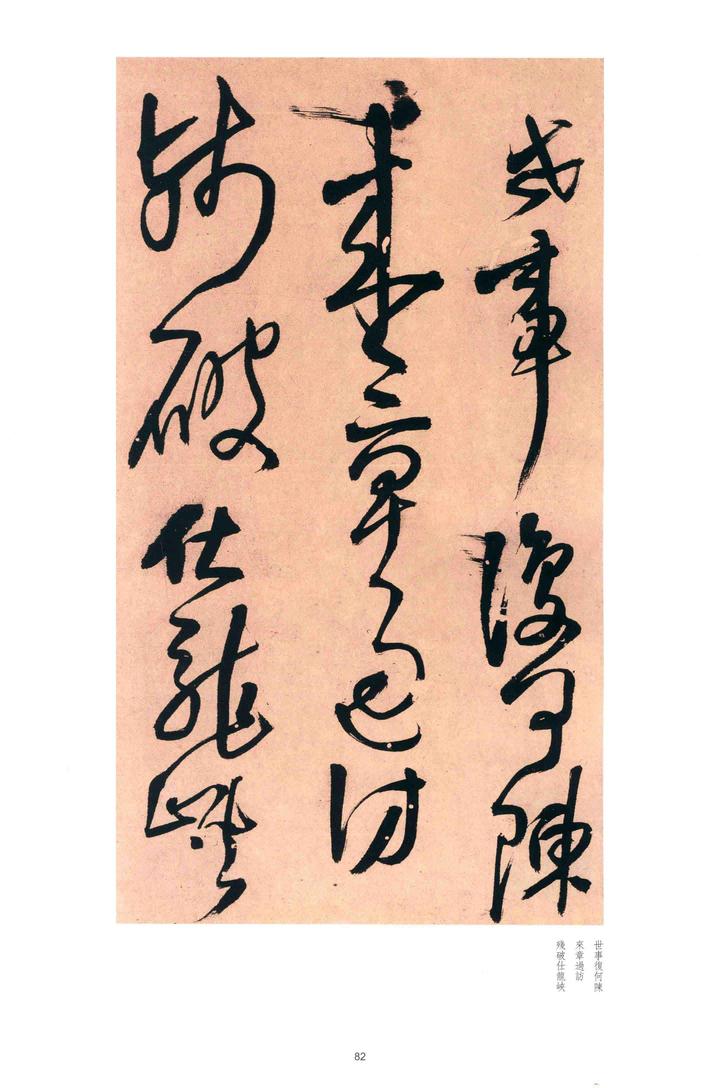 世事復何陳
來章過訪
殘破仕龍峽
世事復何陳
來章過訪
殘破仕龍峽
82